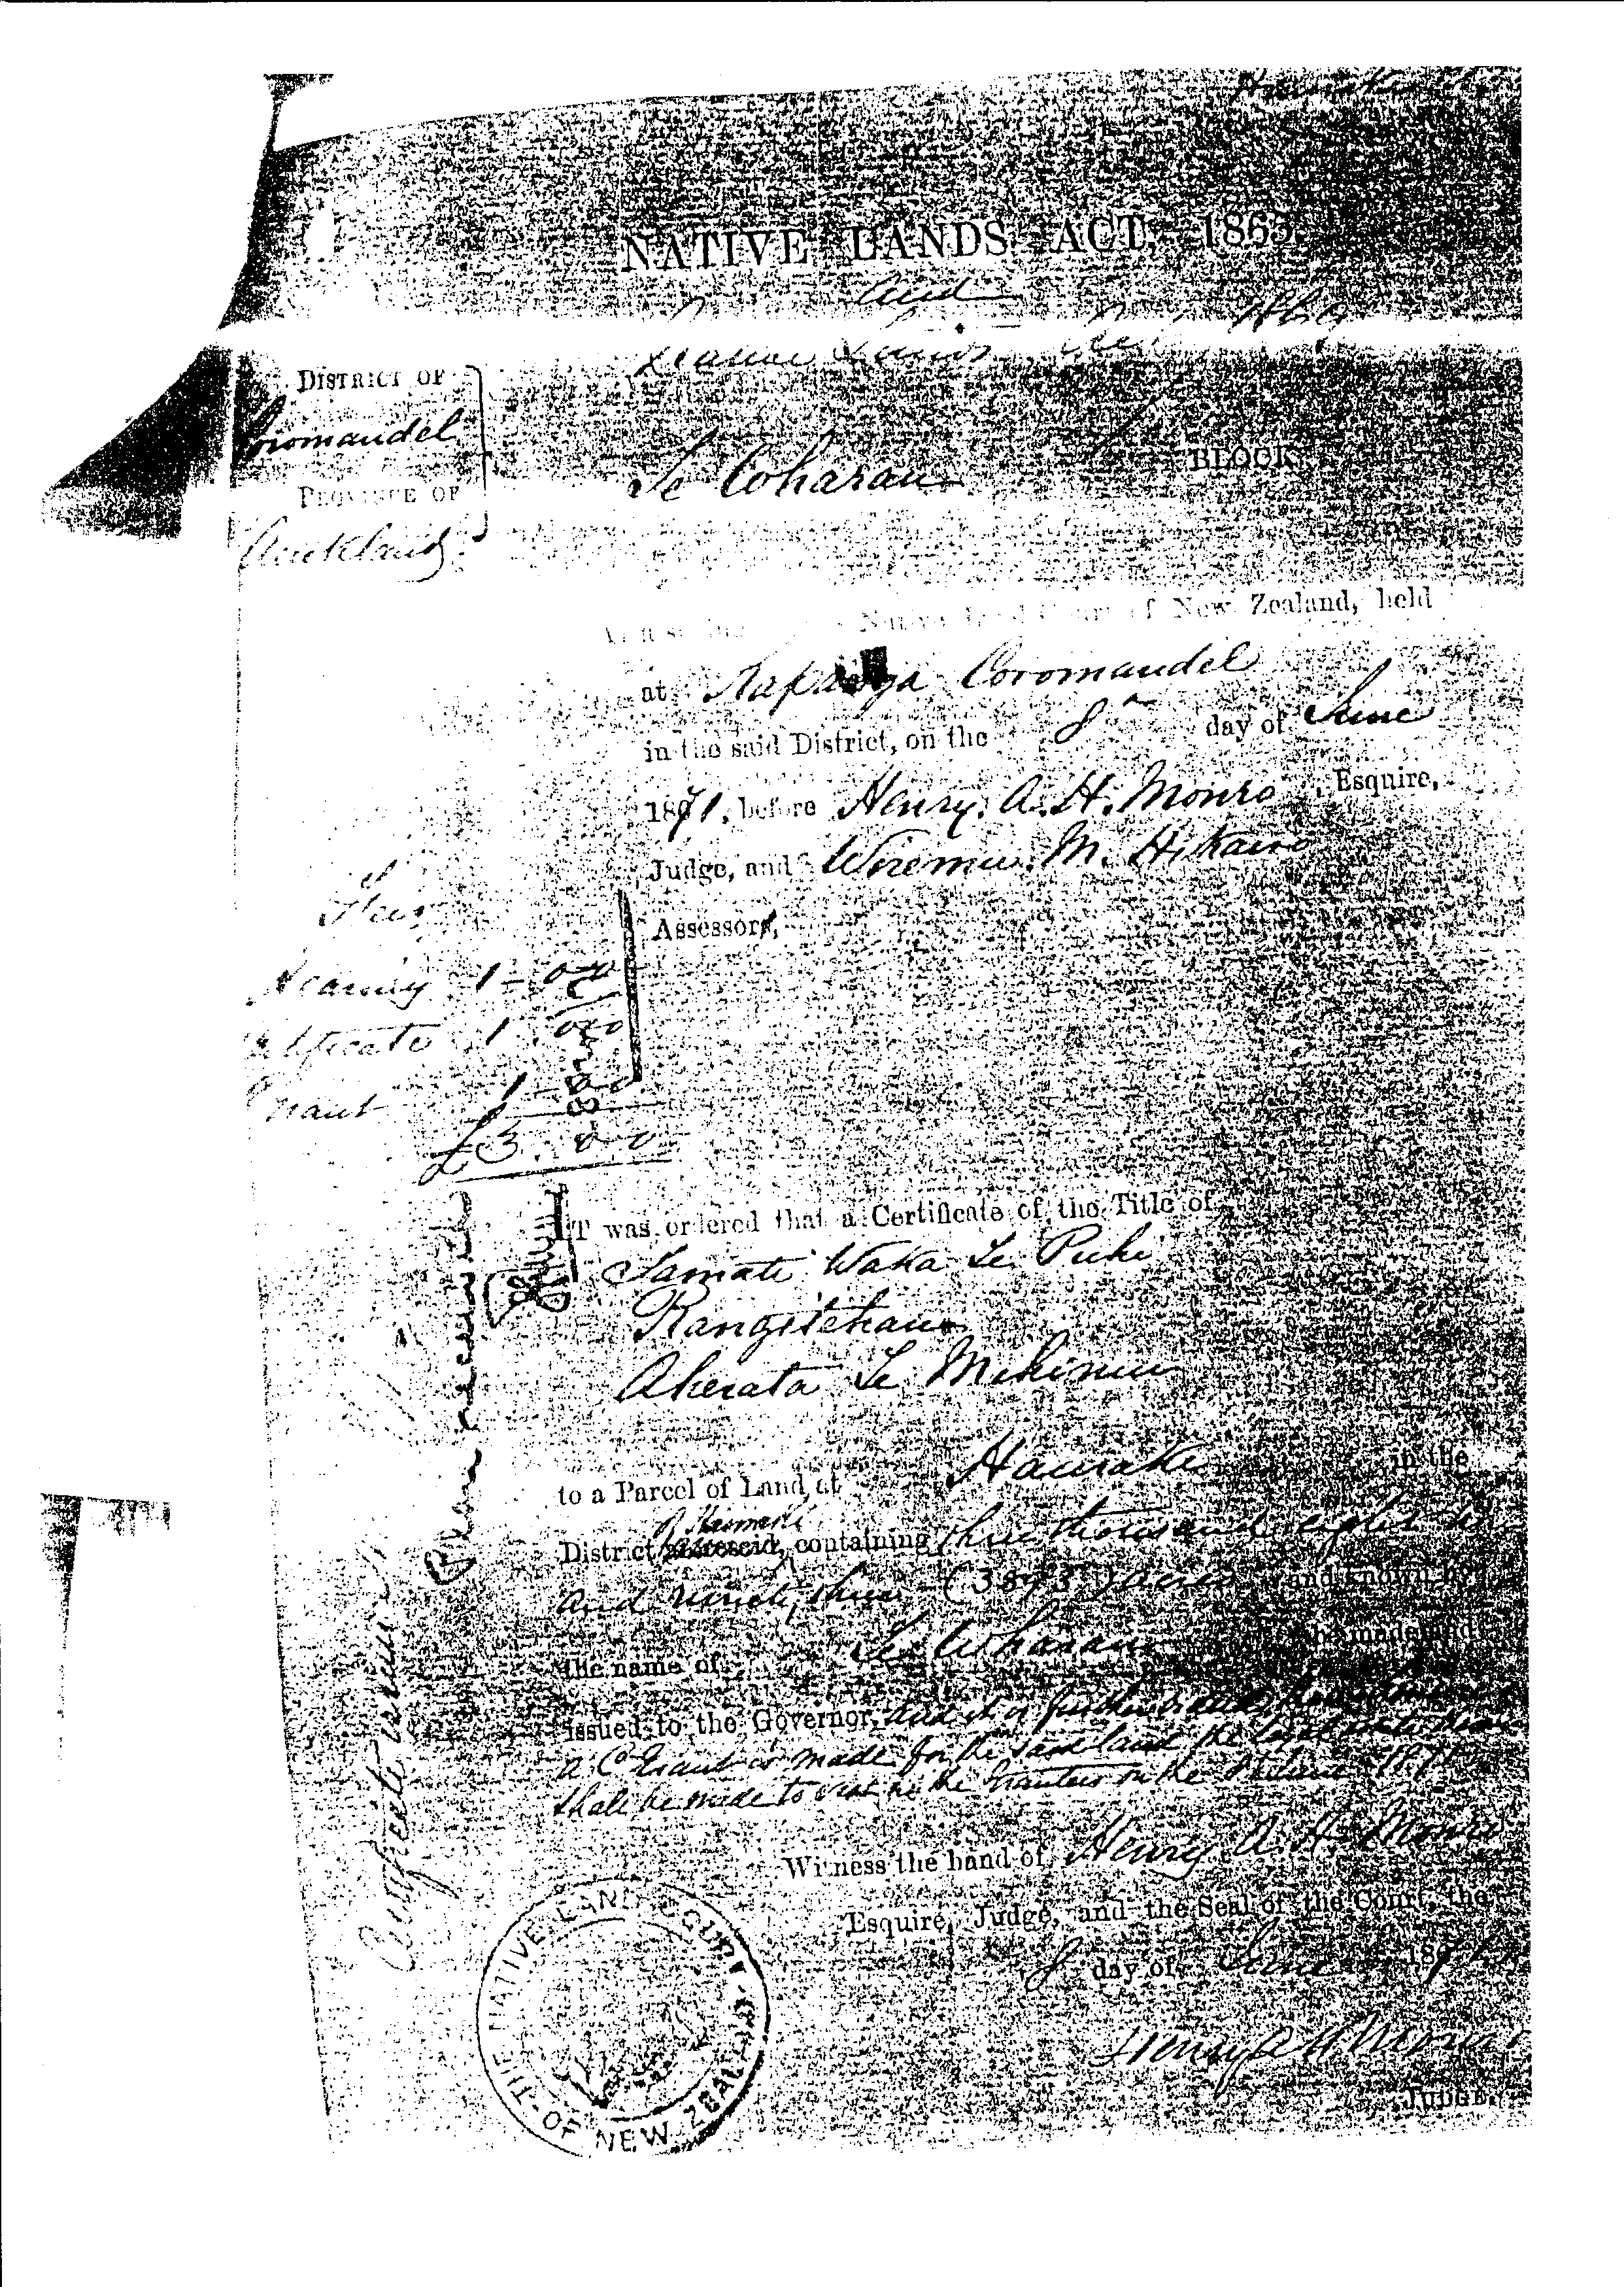 NATIVE LANDS ACT, 1865
and
DISTRICT OF
Coromandel
PROVINCE OF
Auckland
Te Wharau
BLOCK
Native Land Court of New Zealand, held
at Kapanga Coromandel
in the said District, on the 8th day of June
1871, before Henry A. H. Monro, Esquire,
Judge, and Wiremu M. Hikairo
Assessor,
Fees
Hearing 1-0-0
Certificate 1-0-0
Grant 1-0-0
£3-0-0
IT was ordered that a Certificate of the Title of
Tamati Waka Te Puhi
Rangitehau
Akerata Te Mihinui
to a Parcel of Land at Hauraki in the
District aforesaid, containing three thousand eight
and ninety three (3893) acres and known by
the name of Te Wharau be made and
issued to the Governor, and it is further
a Co Grant is made for the said land the
shall be made to vest in the Grantees on the 1871
Witness the hand of Henry A. H. Monro
Esquire, Judge, and the Seal of the Court, the
8 day of June 1871
Henry A H Monro
JUDGE.
THE NATIVE LAND COURT
OF NEW ZEALAND
Plan received